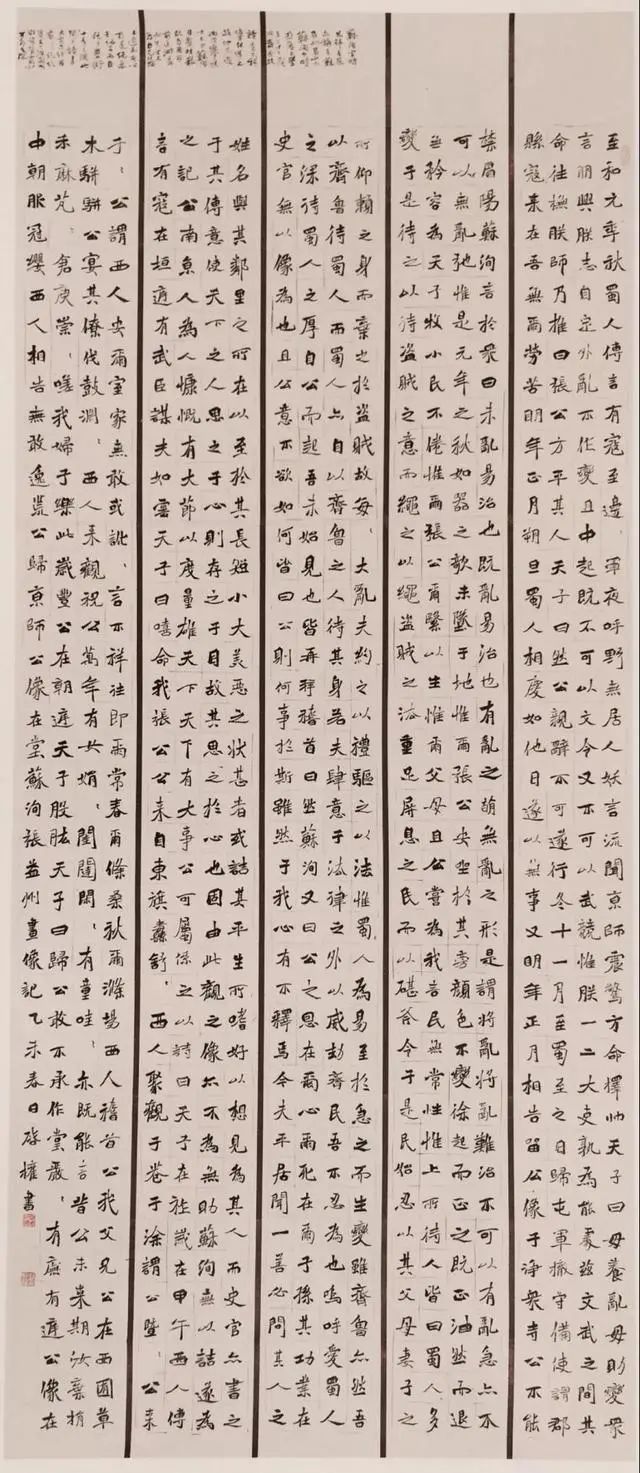 至和元年秋蜀人傳言有寇至邊、軍夜呼野無居人妖言流聞京師震驚方命擇帥天子曰毋養亂毋助變衆
言朋興朕志自定外亂不作變且中起既不可以文令又不可以武競惟朕一二大吏孰為能處茲文武之間其
命往撫朕師乃推曰張公方平其人天子曰然公親辭不可遂行冬十一月至蜀至之日歸屯軍撤守備使謂郡
縣寇來在吾無爾勞苦明年正月朔旦蜀人相慶如他日遂以無事又明年正月相告留公像于淨衆寺公不能
禁眉陽蘇洵言於衆曰未亂易治也既亂易治也有亂之萌無亂之形是謂將亂將亂難治不可以有亂急亦不
可以無亂弛惟是元年之秋如器之欹未墜于地惟爾張公安坐於其旁顏色不變徐起而正之既正油然而退
無矜容為天子牧小民不倦惟爾張公爾繄以生惟爾父母且公嘗為我言民無常性惟上所待人皆曰蜀人多
變于是待之以待盜賊之意而繩之以繩盜賊之法重足屏息之民而以碪斧令于是民始忍以其父母妻子之
所仰賴之身而棄之於盜賊故每、大亂夫約之以禮驅之以法惟蜀人為易至於急之而生變雖齊魯亦然吾
以齊魯待蜀人而蜀人亦自以齊魯之人待其身若夫肆意于法律之外以威劫齊民吾不忍為也嗚呼愛蜀人
之深待蜀人之厚自公而前吾未始見也皆再拜稽首曰然蘇洵又曰公之恩在爾心爾死在爾子孫其功業在
史官無以像為也且公意不欲如何皆曰公則何事於斯雖然于我心有不釋焉今夫平居聞一善必問其人之
姓名與其鄰里之所在以至於其長短小大美惡之狀甚者或詰其平生所嗜好以想見為其人而史官亦書之
于其傳意使天下之人思之于心則存之于目故其思之於心也固由此觀之像亦不為無助蘇洵無以詰遂為
之記公南京人為人慷慨有大節以度量雄天下天下有大事公可屬係之以詩曰天子在祚歲在甲午西人傳
言有寇在垣庭有武臣謀夫如雲天子曰嘻命我張公公來自東旗纛舒、西人聚觀于巷于塗謂公暨、公來
于、公謂西人安爾室家無敢或訛、言不祥往即爾常春爾條桑秋爾滌場西人稽首公我父兄公在西囿草
木駢駢公宴其僚伐鼓淵、西人來觀祝公萬年有女娟、閨闥閑、有童哇、亦既能言昔公未來期汝棄捐
禾麻芃、倉庾崇、嗟我婦子樂此歲豐公在朝廷天子股肱天子曰歸公敢不承作堂嚴、有廡有庭公像在
中朝服冠纓西人相告無敢逸荒公歸京師公像在堂蘇洵張益州畫像記乙未春日書